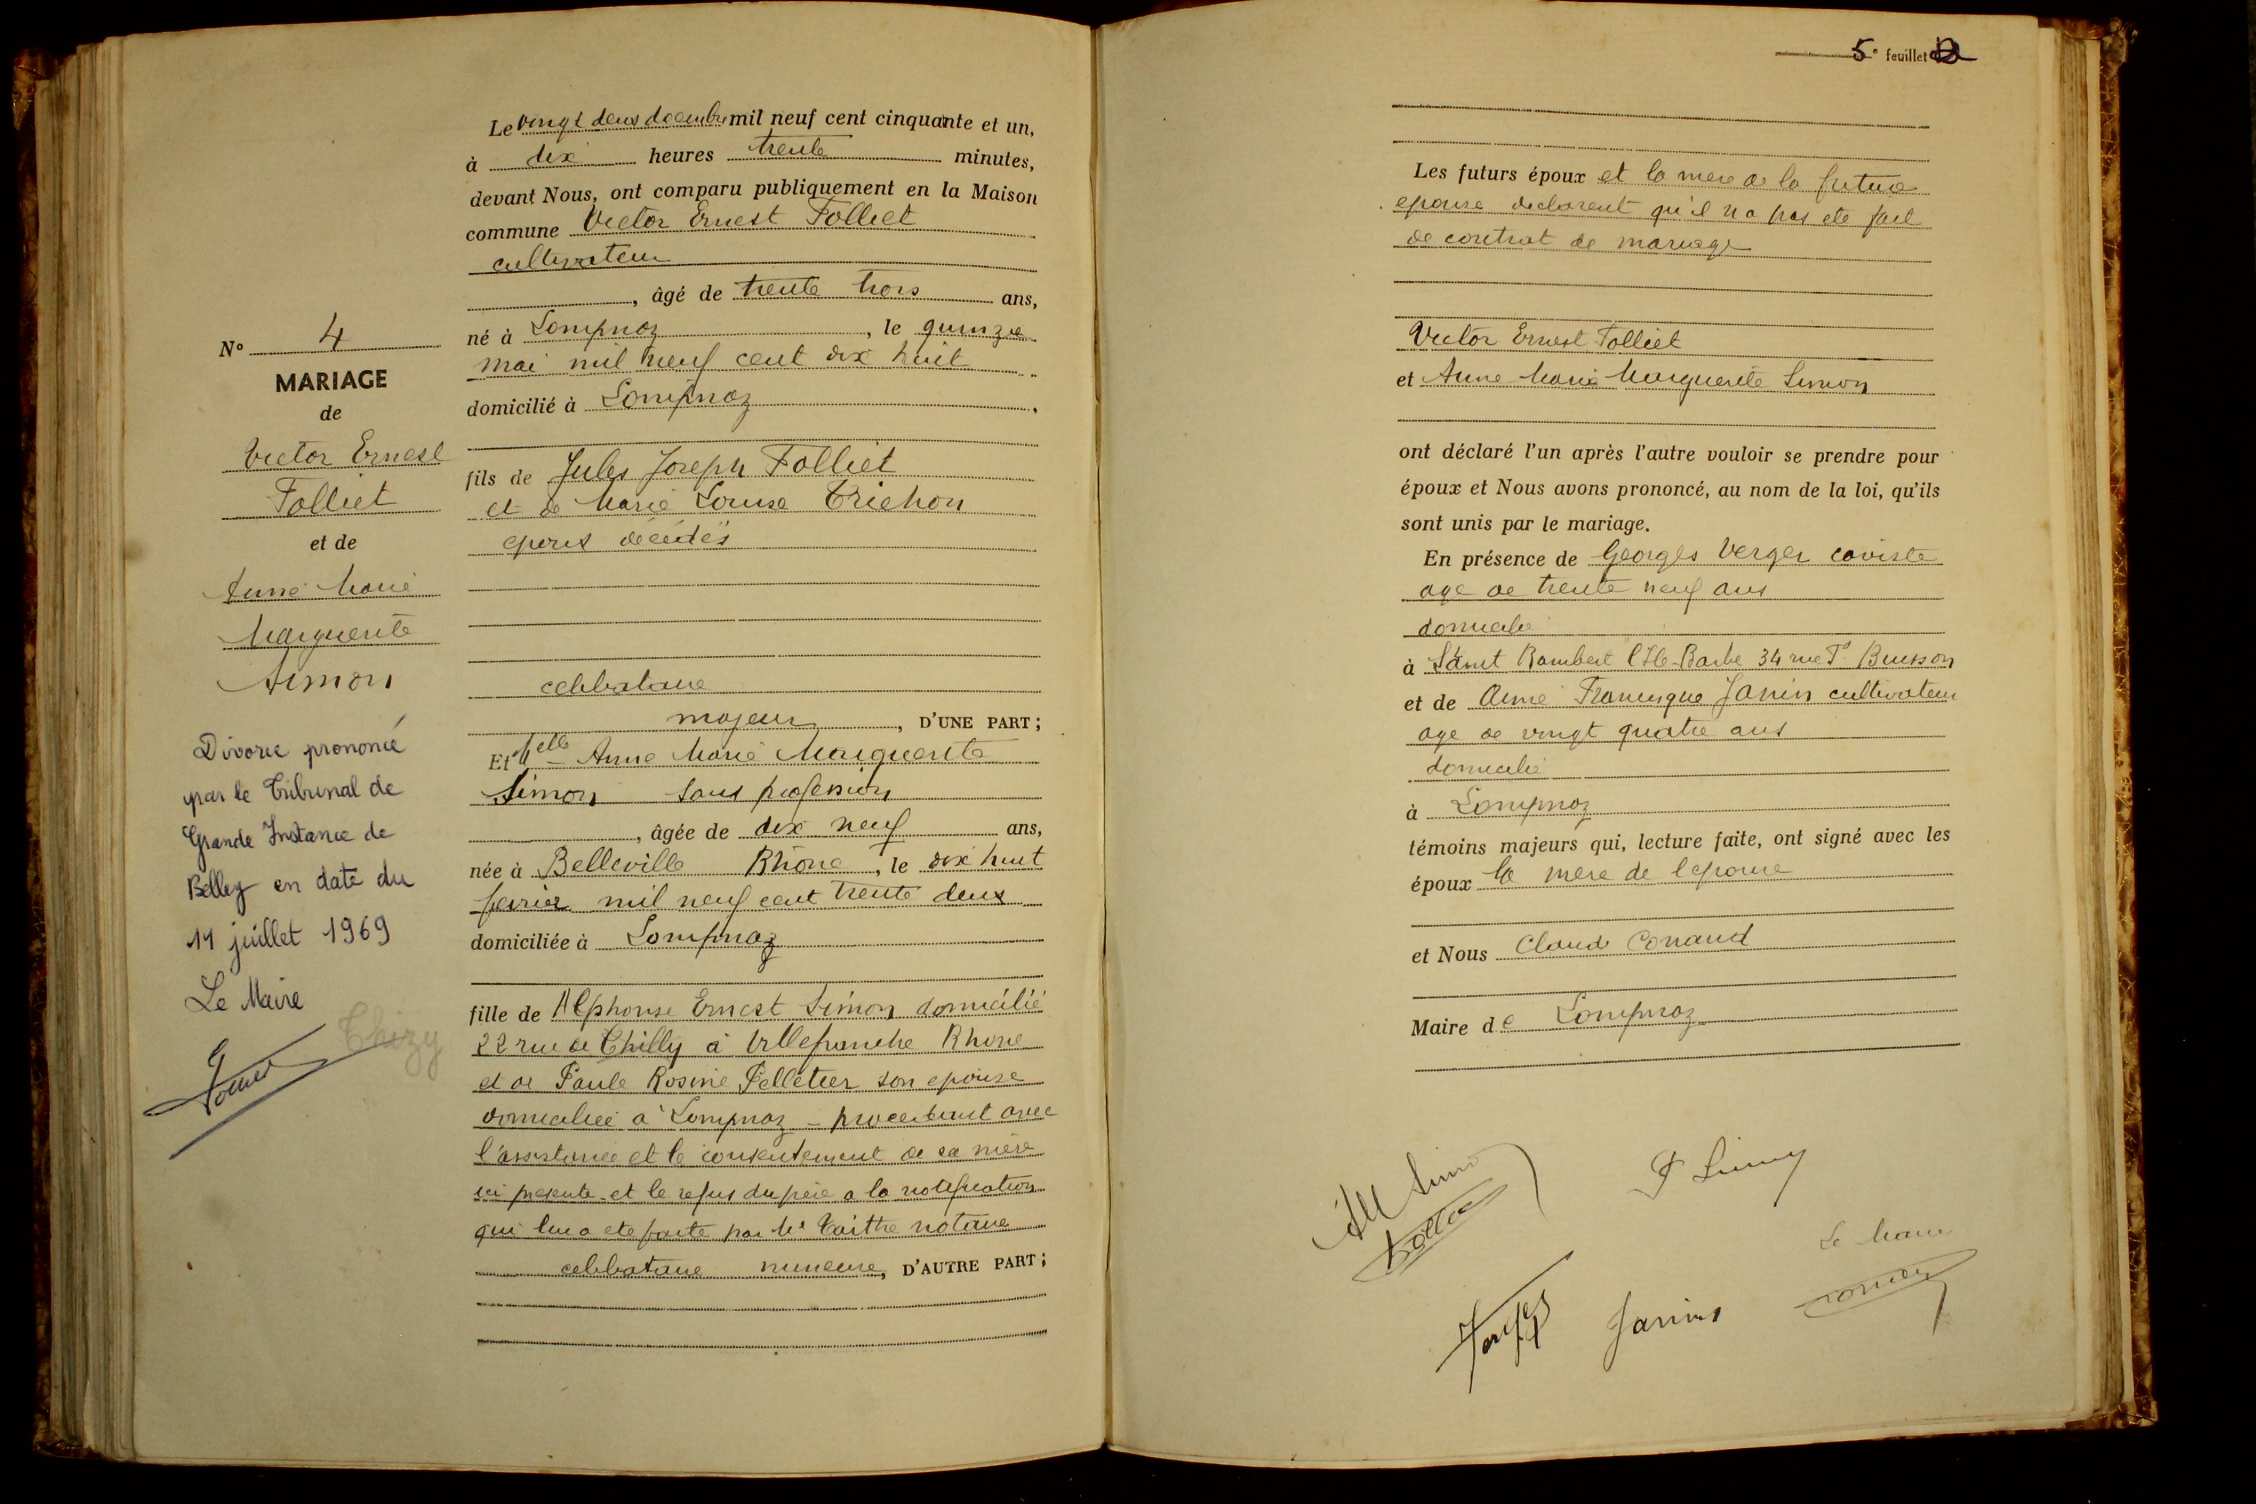 Le vingt deux decembre mil neuf cent cinquante et un,
à dix heures trente minutes,
devant Nous, ont comparu publiquement en la Maison
commune Victor Ernest Folliet
cultivateur
, âgé de trente trois ans,
né à Lompnaz, le quinze
mai mil neuf cent dix huit
domicilié à Lompnaz
fils de Jules Joseph Folliet
et de Marie Louise Trichon
epoux décédés
celibataire
majeur, D'UNE PART;
Et Melle Anne Marie Marguerite
Simon sans profession
, âgée de dix neuf ans,
née à Belleville Rhône, le dix huit
fevrier mil neuf cent trente deux
domiciliée à Lompnaz
fille de Alphonse Ernest Simon domicilié
22 rue de Thilly à Villefranche Rhone
et de Paule Rosine Pelletier son epouse
domiciliée à Lompnaz - procedant avec
l'assistance et le consentement de sa mère
ici presente et le refus du père a la notification
qui lui a ete faite par Me notaire
celibataire mineure, D'AUTRE PART;
N° 4
MARIAGE
de
Victor Ernest
Folliet
et de
Anne Marie
Marguerite
Simon
Divorce prononcé
par le Tribunal de
Grande Instance de
Belley en date du
11 juillet 1969
Le Maire
Thizy
5e feuillet
Les futurs époux et la mere de la future
epouse declarent qu'il n'a pas ete fait
de contrat de mariage
Victor Ernest Folliet
et Anne Marie Marguerite Simon
ont déclaré l'un après l'autre vouloir se prendre pour
époux et Nous avons prononcé, au nom de la loi, qu'ils
sont unis par le mariage.
En présence de Georges Verger caviste
age de trente neuf ans
domicilié
à Saint Rambert l'Ile-Barbe 34 rue Fd Buisson
et de Aimé Francisque Janin cultivateur
age de vingt quatre ans
domicilié
à Lompnaz
témoins majeurs qui, lecture faite, ont signé avec les
époux la mere de l'epouse
et Nous Claude Conand
Maire de Lompnaz
AM Simon
P Simon
Folliet
Le Maire
Conand
Janin